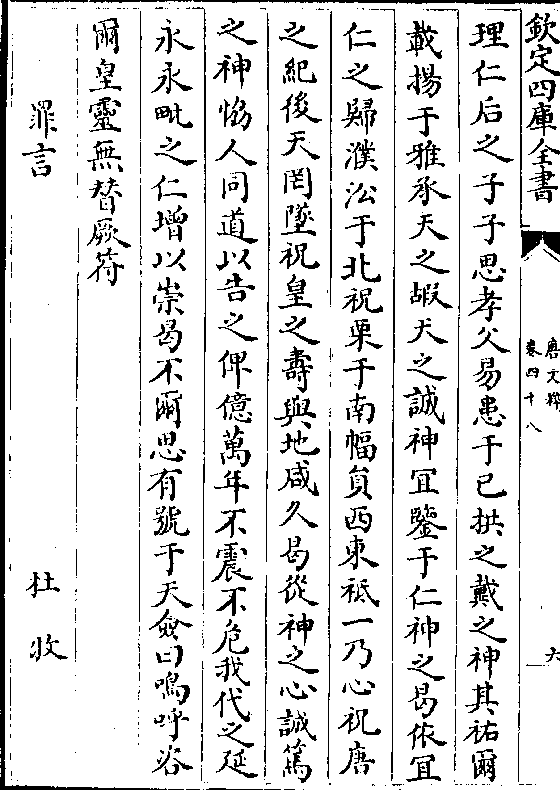 欽定四庫全書
唐文粹
卷四十八
六
理仁后之子子思孝父易患于已拱之戴之神其祐爾
載揚于雅承天之嘏天之誠神宜鑒于仁神之曷依宜
仁之歸濮沿于北祝栗于南幅員西東祗一乃心祝唐
之紀後天罔墜祝皇之壽與地咸久曷從神之心誠篤
之神恊人同道以告之俾億萬年不震不危我代之延
永永毗之仁增以崇曷不爾思有號于天僉曰嗚呼咨
爾皇靈無替厥符
罪言 杜牧